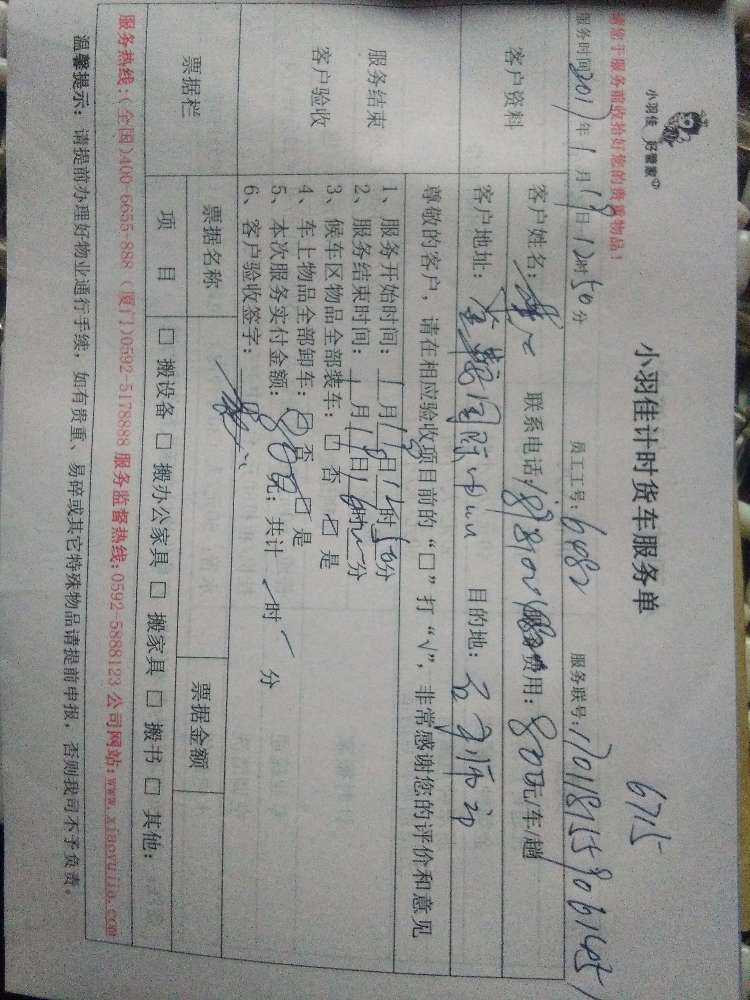 小羽佳 好管家
小羽佳计时货车服务单
6715
请您于服务前收拾好您的贵重物品!
服务时间2017年1月18日12时50分 员工工号:6982 服务联号:
客户资料
客户姓名: 联系电话: 服务费用:80元/车/趟
客户地址: 国际 目的地:
尊敬的客户,请在相应验收项目前的“□”打“√”,非常感谢您的评价和意见
服务结束
客户验收
1、服务开始时间:1月18日12时50分
2、服务结束时间:1月18日 时 分
3、候车区物品全部装车:□ 否 ☑ 是
4、车上物品全部卸车:□ 否 ☑ 是
5、本次服务实付金额:80元;共计 时 分
6、客户验收签字:
票据栏
票据名称 票据金额
项 目 □ 搬设备 □ 搬办公家具 □ 搬家具 □ 搬书 □ 其他:
服务热线:(全国)400-6655-888 (厦门)0592-5178888 服务监督热线:0592-5888123 公司网站:www.xiaoyujia.com
温馨提示:请提前办理好物业通行手续,如有贵重、易碎或其它特殊物品请提前申报,否则我司不予负责。